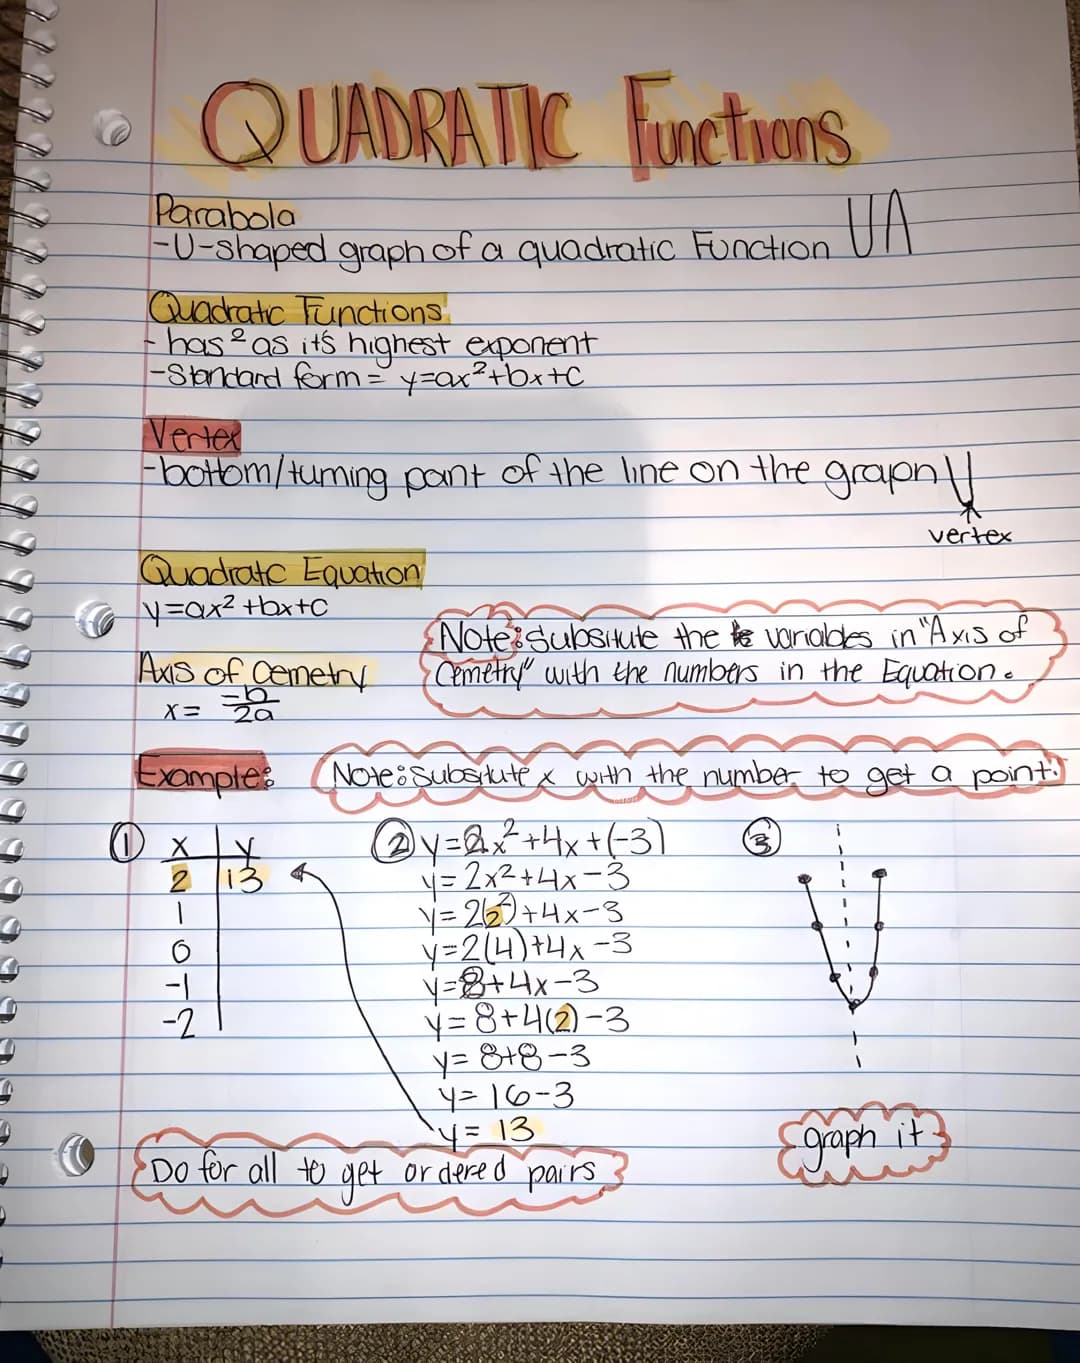 QUADRATIC Functions
Parabola
-U-shaped graph of a quadratic Function UΛ
Quadratic Functions
- has ² as it's highest exponent
-Standard form = y=ax²+bx+c
Vertex
-bottom/turning point of the line on the graph
vertex
Quadratc Equation
y=ax²+bx+c
Axis of Cemetry
x= -b/2a
Note: Subsitute the variables in "Axis of
Cemetry" with the numbers in the Equation.
Example:
Note: Subsitute x with the number to get a point.
① x y
2 13
1
0
-1
-2
② y=2x²+4x+(-3)
y=2x²+4x-3
y=2(2²)+4x-3
y=2(4)+4x-3
y=8+4x-3
y=8+4(2)-3
y=8+8-3
y=16-3
y=13
③
graph it
Do for all to get ordered pairs